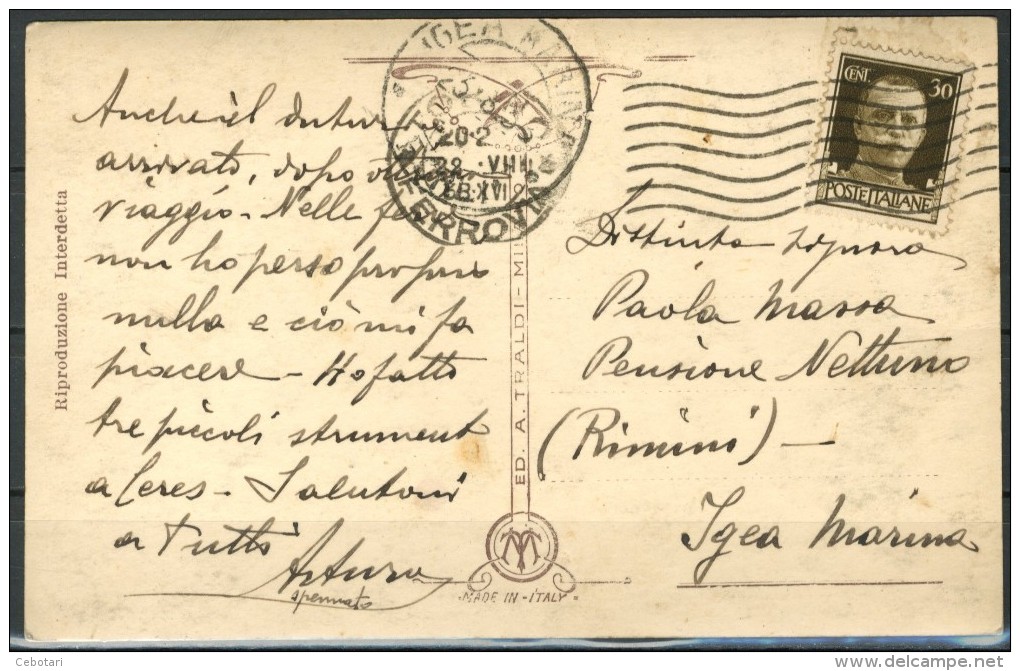 IGEA MARINA
20-2
VIII
FERROVIA
CENT. 30
POSTE ITALIANE
Anche il
arrivato, dopo
viaggio - Nelle
non ho perso
nulla e ciò mi fa
piacere - Ho fatto
tre piccoli strumenti
a Ceres - Salutoni
a tutti
Arturo
spennato
Distinta Signora
Paola Massa
Pensione Nettuno
(Rimini) -
Igea Marina
Riproduzione Interdetta
ED. A. TRALDI - MIL
MADE IN - ITALY
Cebotari
www.delcampe.net